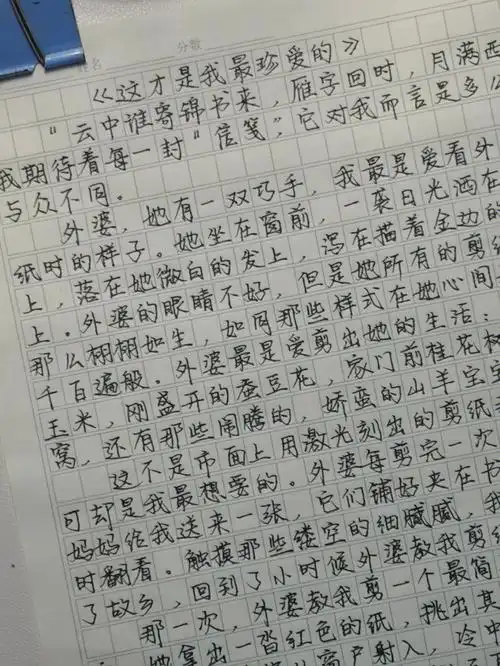 分数
《这才是我最珍爱的》
"云中谁寄锦书来，雁字回时，月满西
我期待着每一封"信笺"，它对我而言是多么
与众不同。
外婆，她有一双巧手，我最是爱看外
纸时的样子。她坐在窗前，一袭日光洒在
上，落在她微白的发上，泻在描着金边的
上。外婆的眼睛不好，但是她所有的剪纸
那么栩栩如生，如同那些样式在她心间
千百遍般。外婆最是爱剪出她的生活：
玉米，刚盛开的蚕豆花，家门前桂花树
窝，还有那些闹腾的，娇蛮的山羊宝宝
这不是市面上用激光刻出的剪纸
可却是我最想要的。外婆每剪完一次
妈妈给我送来一张，它们铺好夹在书
时翻看。触摸那些镂空的细腻腻，我
了故乡，回到了小时候外婆教我剪纸
那一次，外婆教我剪一个最简
她拿出一沓红色的纸，挑出其
窗户射入，冷中